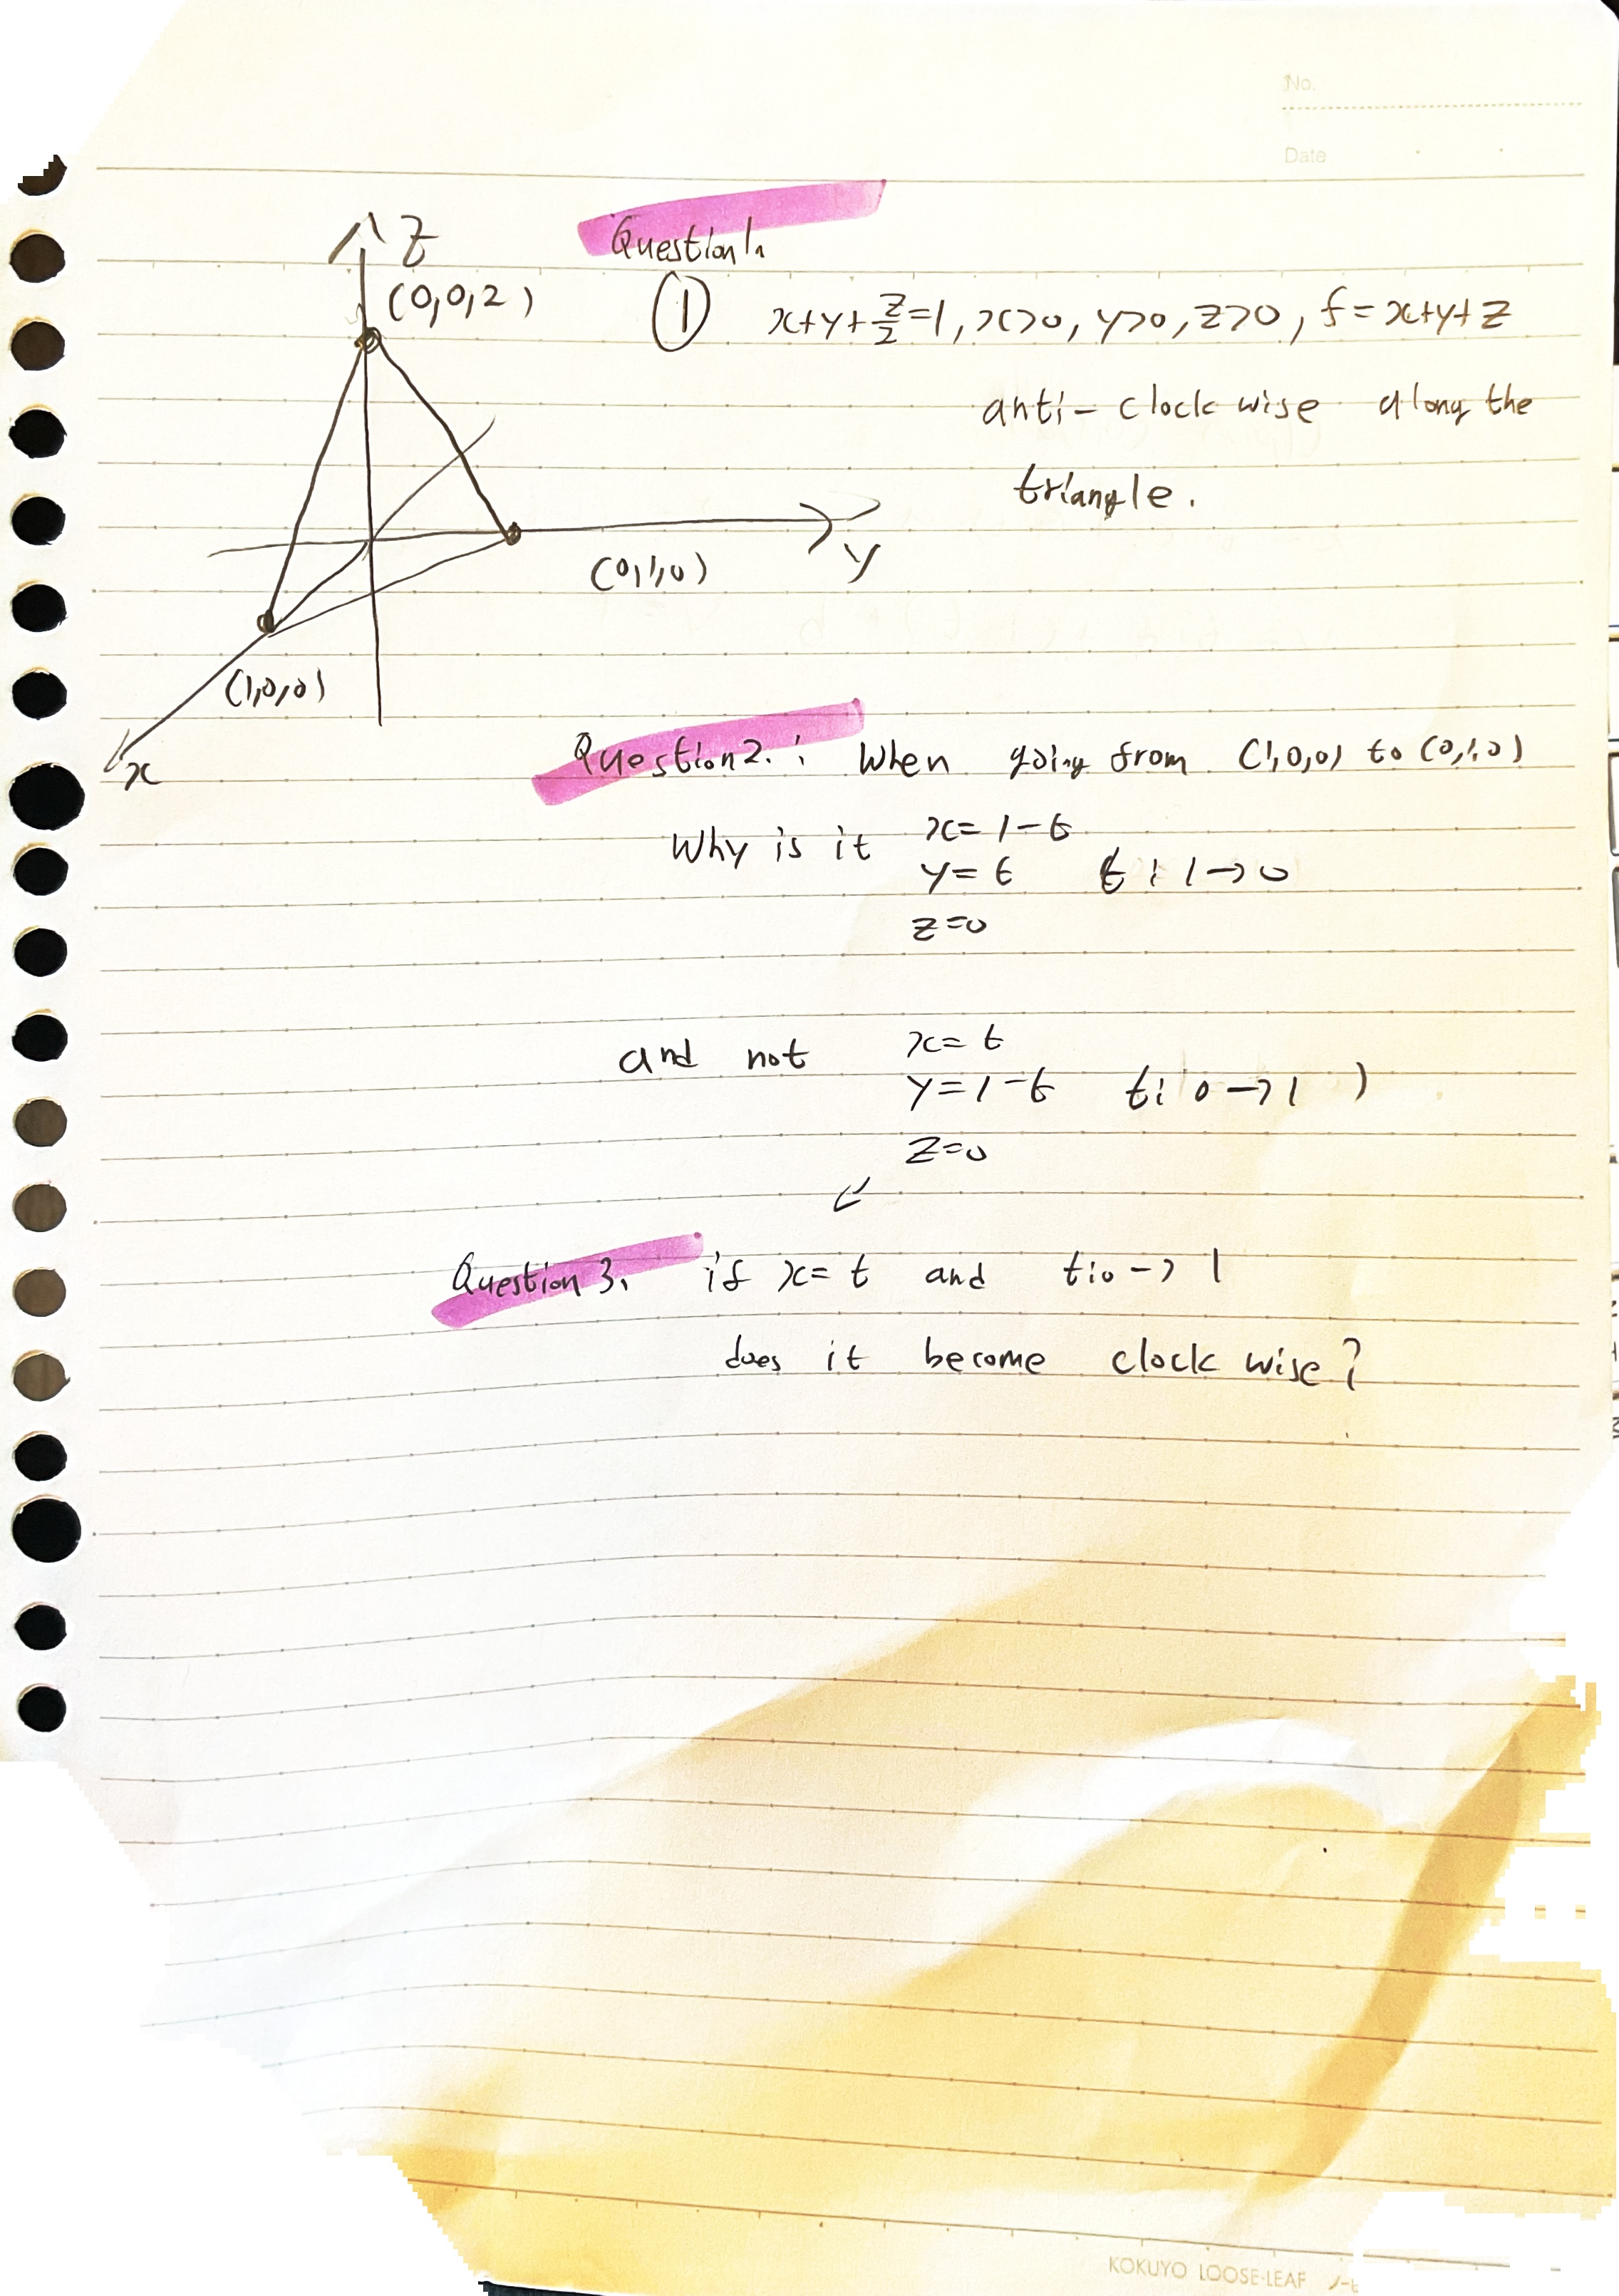 No.
Date
Question 1.
z
(0,0,2)
① x+y+z/2=1, x>0, y>0, z>0, f=x+y+z
anti-clockwise along the
triangle.
y
(0,1,0)
(1,0,0)
x
Question 2. : When going from (1,0,0) to (0,1,0)
Why is it x=1-t
y=t t: 1→0
z=0
and not x=t
y=1-t t: 0→1 )
z=0
Question 3. if x=t and t:0→1
does it become clock wise?
KOKUYO LOOSE-LEAF